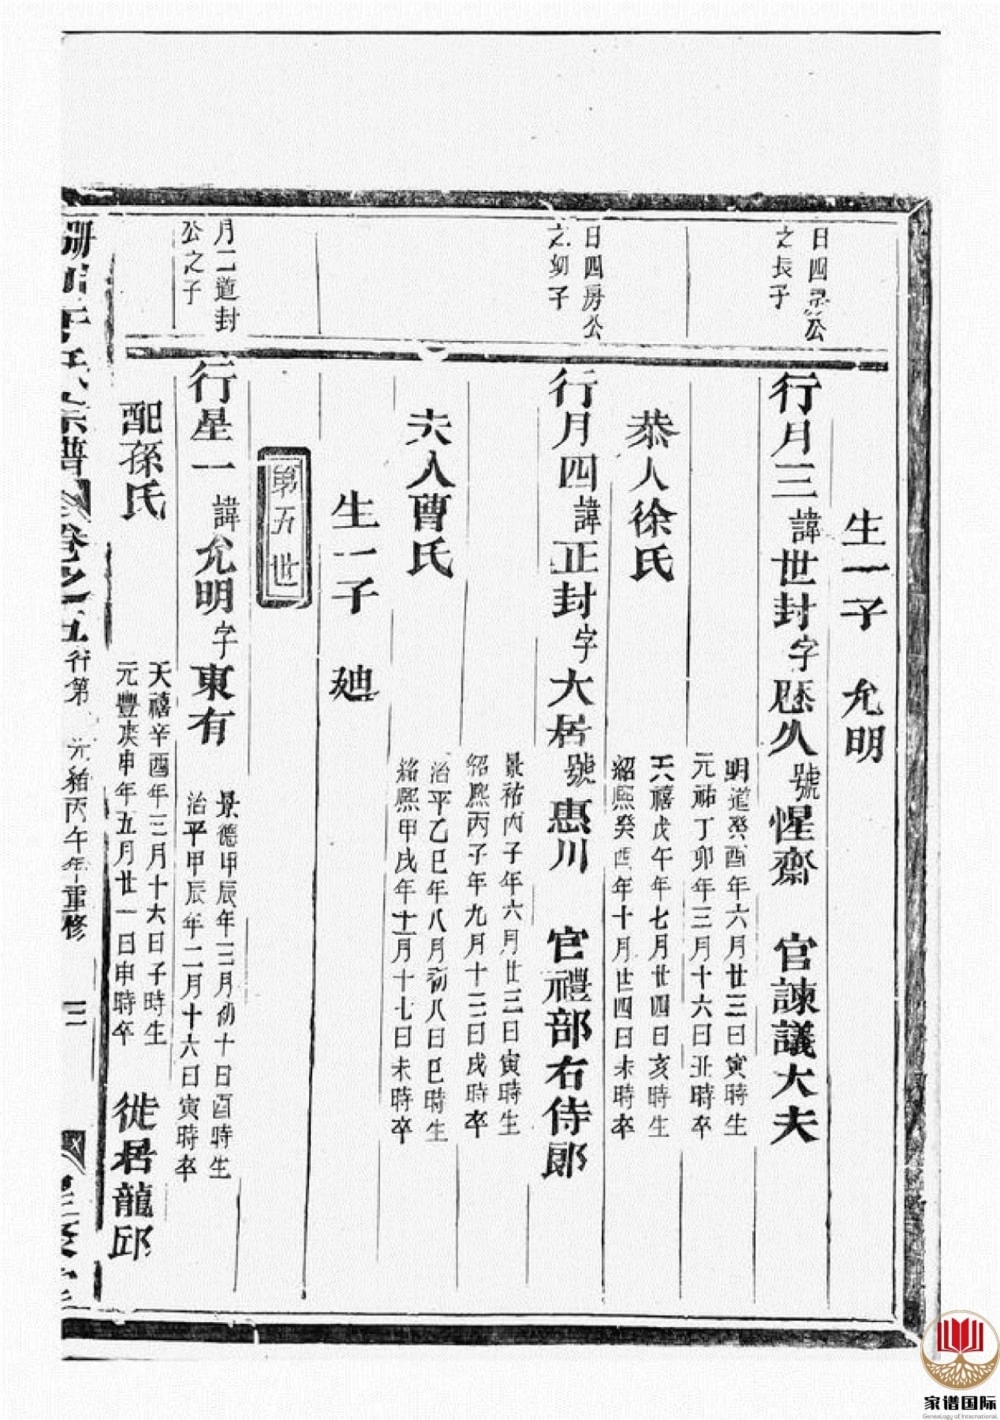 生一子 允明
日四房公
之長子
行月三 諱世封字歷久號惺齋 官諫議大夫
明道癸酉年六月廿三日寅時生
元祐丁卯年三月十六日丑時卒
恭人徐氏
天禧戊午年七月廿四日亥時生
紹熙癸酉年十月廿四日未時卒
日四房公
之幼子
行月四 諱正封字大居號惠川 官禮部右侍郎
景祐丙子年六月廿三日寅時生
紹熙丙子年九月十三日戌時卒
夫人曹氏
治平乙巳年八月初八日巳時生
紹熙甲戌年十一月十七日未時卒
生一子 廸
第五世
月二道封
公之子
行星一 諱允明字東有
景德甲辰年三月初十日酉時生
治平甲辰年二月十六日寅時卒
配孫氏
天禧辛酉年三月十六日子時生
元豐庚申年五月廿一日申時卒
徙居龍邱
氏宗譜 卷之五 行第 光緒丙午年重修 三
家谱国际
Genealogy of International